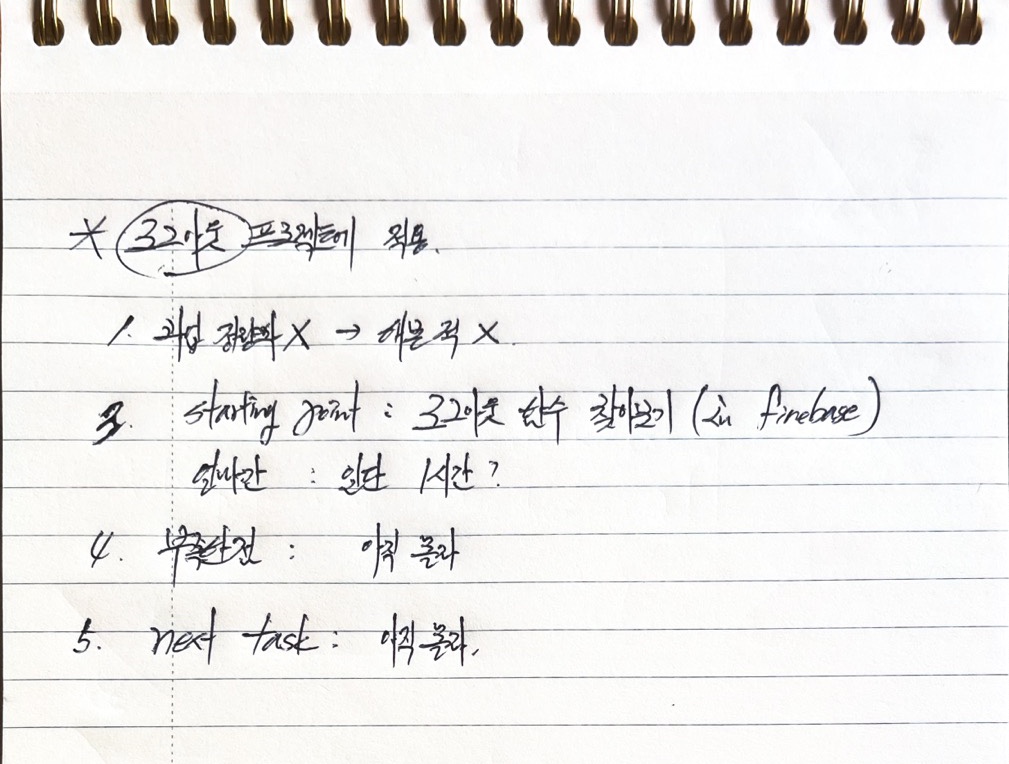 * 로그아웃 프로젝트에 적용.
1. 작업 정량화 X → 해본 적 X.
3. starting point : 로그아웃 함수 찾아보기 (in firebase)
얼마간 : 일단 1시간?
4. 부족한건 : 아직 몰라
5. next task : 아직 몰라.